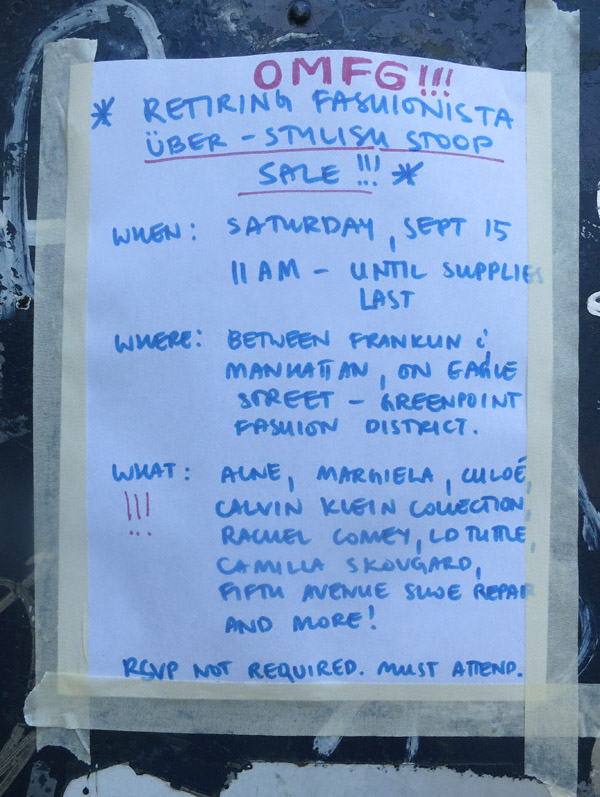 OMFG!!!
* RETIRING FASHIONISTA
ÜBER-STYLISH STOOP
SALE!!! *
WHEN: SATURDAY, SEPT 15
11 AM - UNTIL SUPPLIES
LAST
WHERE: BETWEEN FRANKLIN &
MANHATTAN, ON EAGLE
STREET - GREENPOINT
FASHION DISTRICT.
WHAT: ACNE, MARGIELA, CHLOÉ,
!!! CALVIN KLEIN COLLECTION,
RACHEL COMEY, LD TUTTLE,
CAMILLA SKOVGARD,
FIFTH AVENUE SHOE REPAIR
AND MORE!
RSVP NOT REQUIRED. MUST ATTEND.